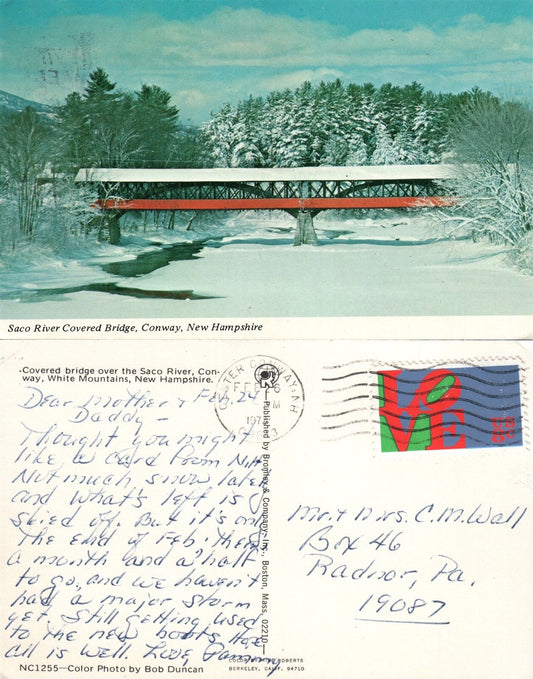 Saco River Covered Bridge, Conway, New Hampshire
Covered bridge over the Saco River, Con-
way, White Mountains, New Hampshire.
Feb, 24
Dear Mother &
Daddy -
Thought you might
like a card from N.H.
Not much snow, late
and what's left is
skied off. But it's only
the end of Feb. there's
a month and a half
to go, and we haven't
had a major storm
yet. Still getting used
to the new boots. Hope
all is well. Love, Pammy
NC1255—Color Photo by Bob Duncan
Published by Bromley & Company, Inc., Boston, Mass. 02210
CENTER CONWAY N.H.
FEB 26
M
197
LOVE
US
8c
Mr. + Mrs. C.M. Wall
Box 46
Radnor, Pa.
19087
COLOR BY ROBERTS
BERKELEY, CALIF. 94710